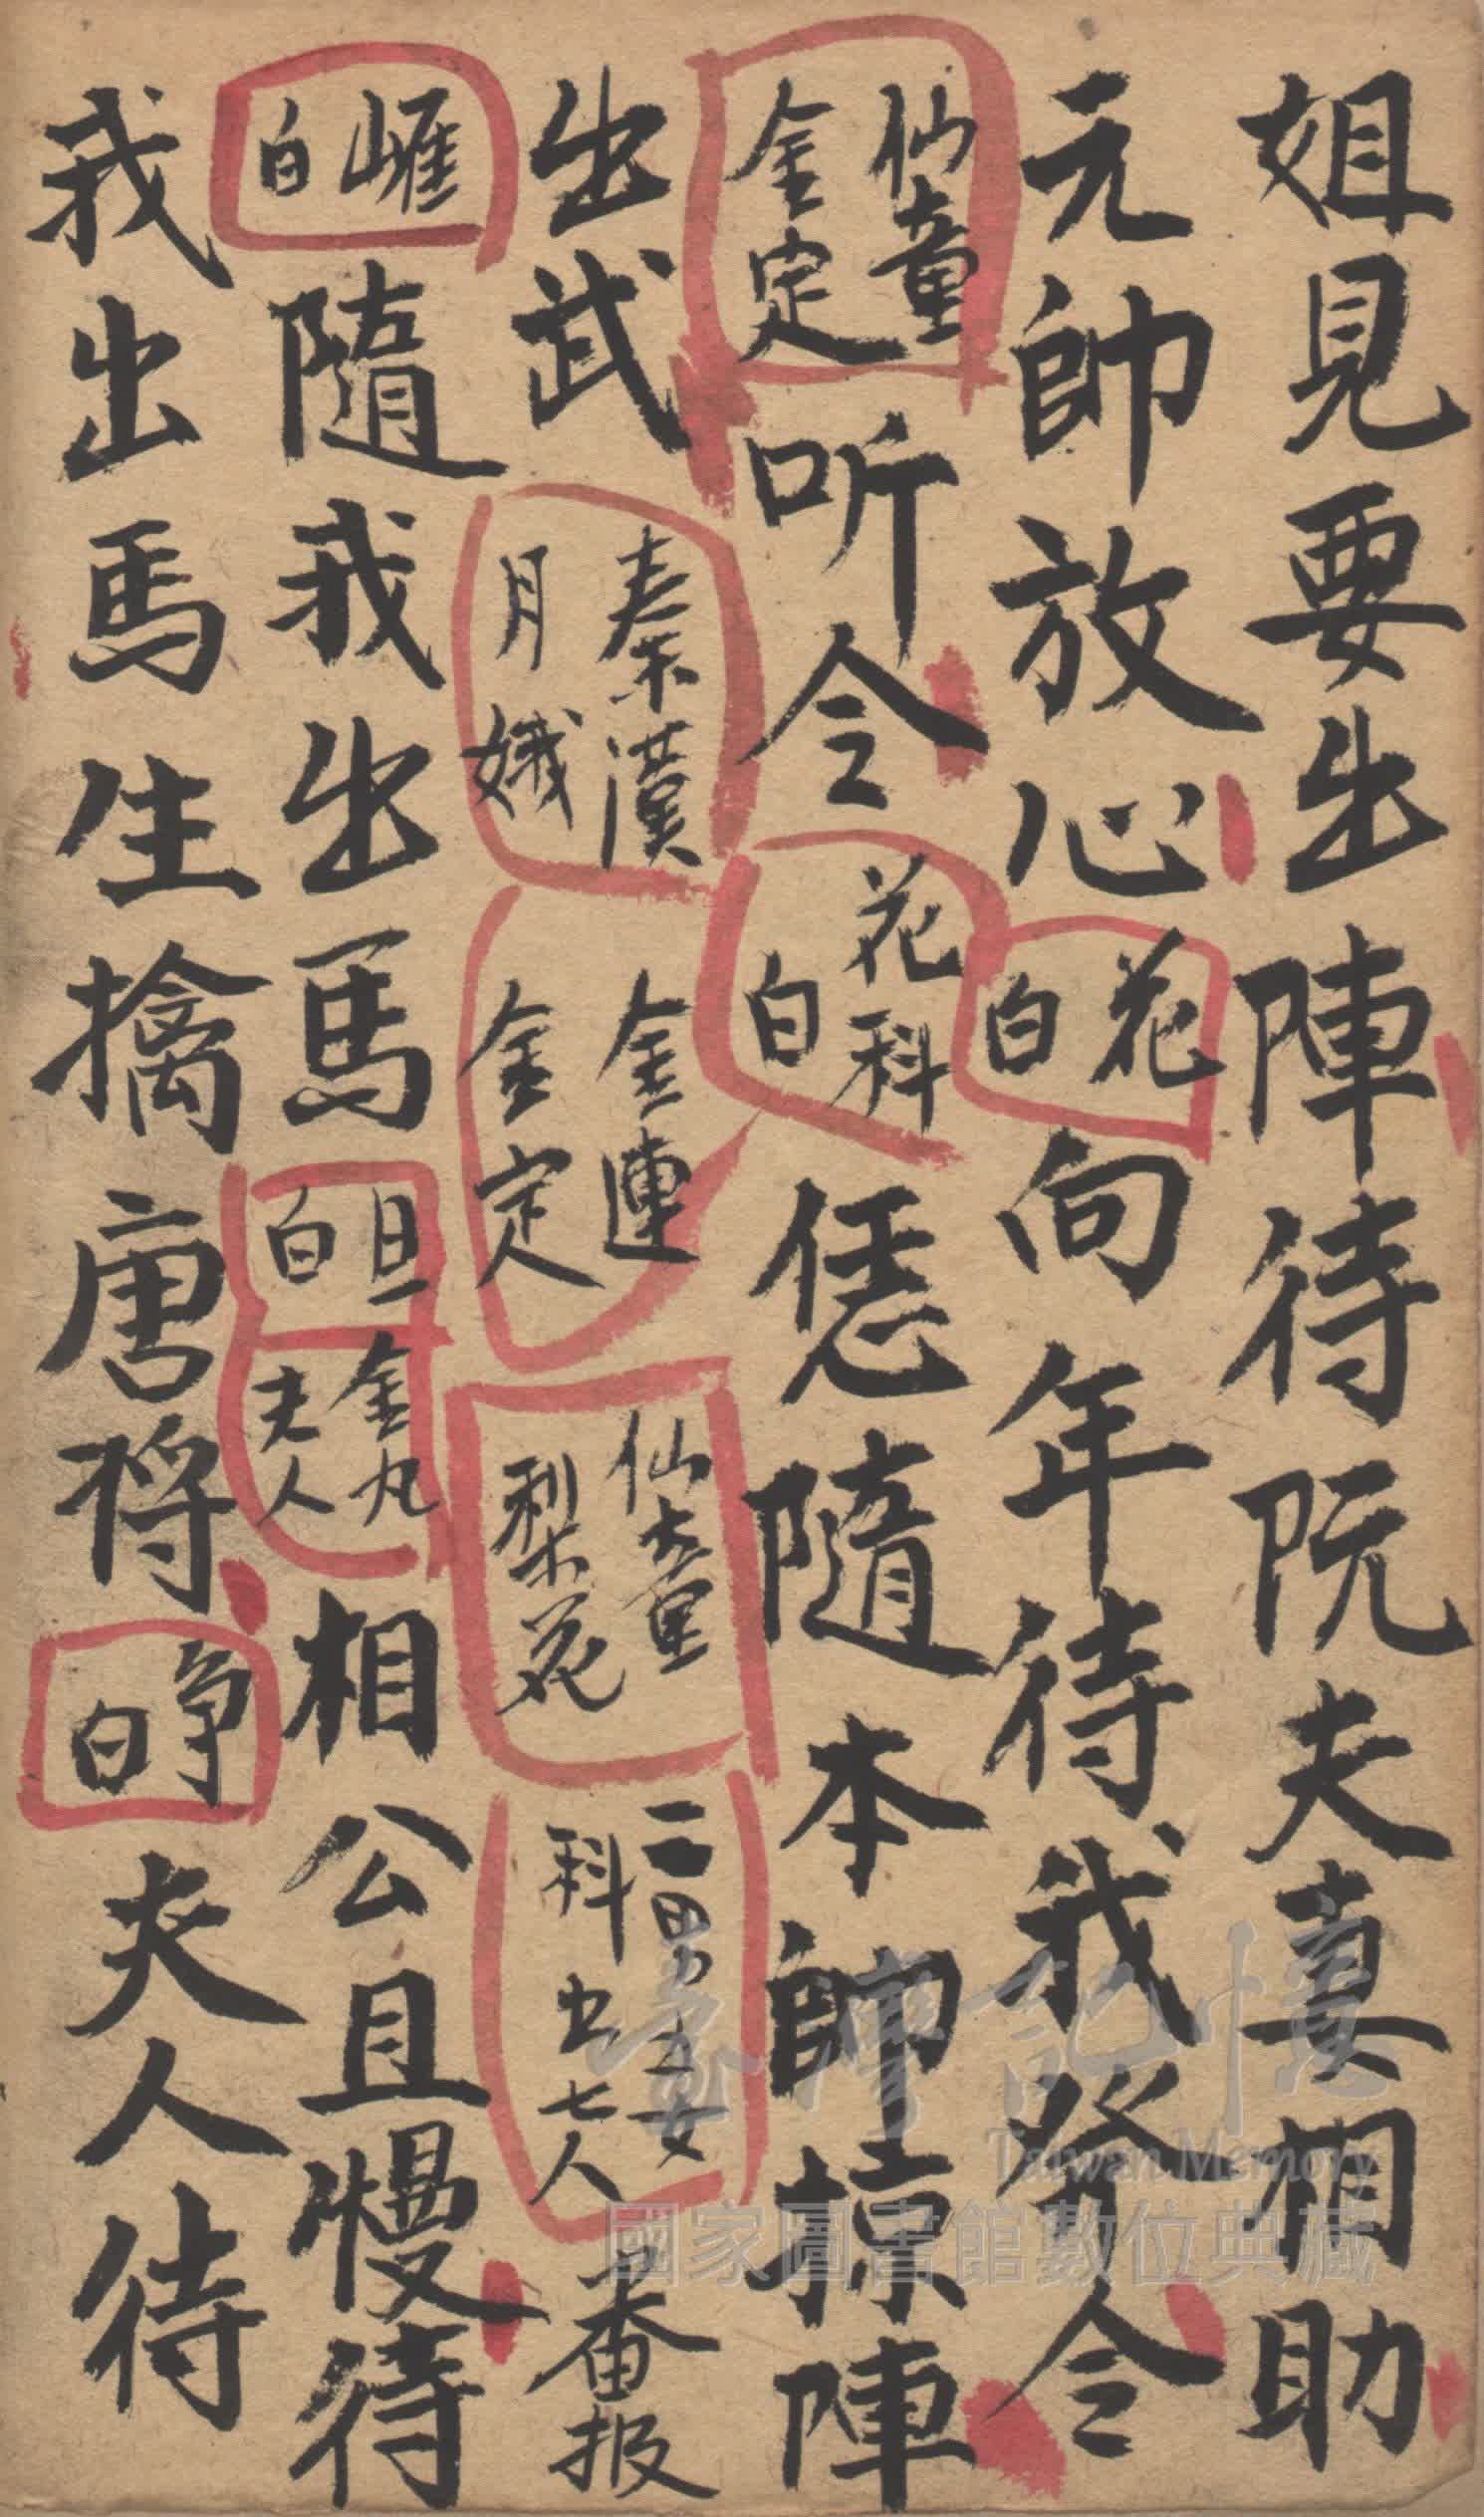 姐見要出陣待阮夫妻相助
元帥放心花白向年待我發令
仙童金定听令花科白恁隨本帥掠陣
出武秦漢月娥金連金定仙童梨花二男五女科出七人番报
嶊白隨我出馬旦白金丸夫人相公且慢待
我出馬生擒唐将争白夫人待
臺灣記憶
Taiwan Memory
國家圖書館數位典藏